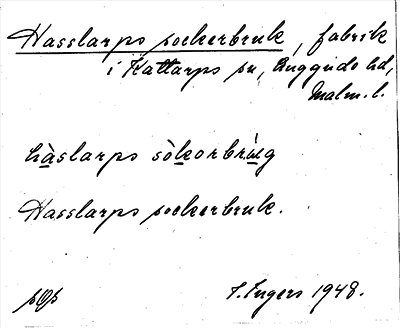 Hasslarps sockerbruk, fabrik
i Kattarps sn, Luggude hd,
Malm. l.
hàslarps sòkorbrúg
Hasslarps sockerbruk.
I. Ingers 1948.